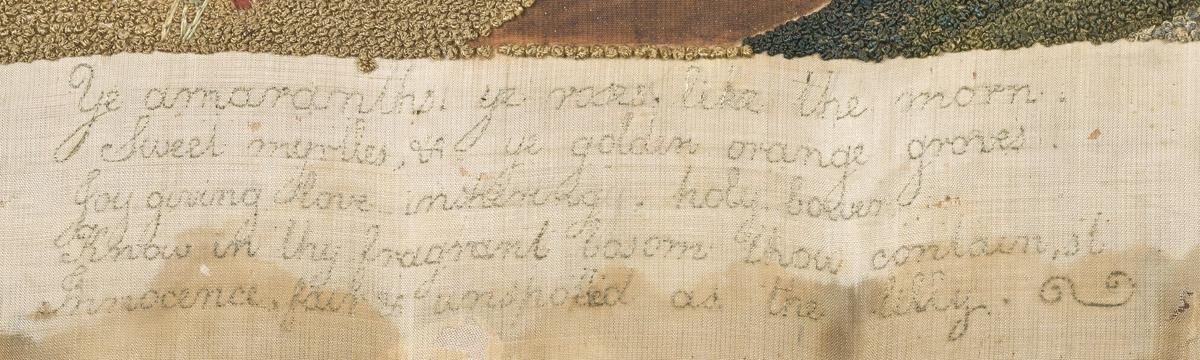 Ye amaranths. ye roses like the morn.
Sweet myrtles, & ye golden orange groves.
Joy giving love inspiring, holy bower
Know in thy fragrant bosom thou contain,st
Innocence, fair & unspotted as the lilly.